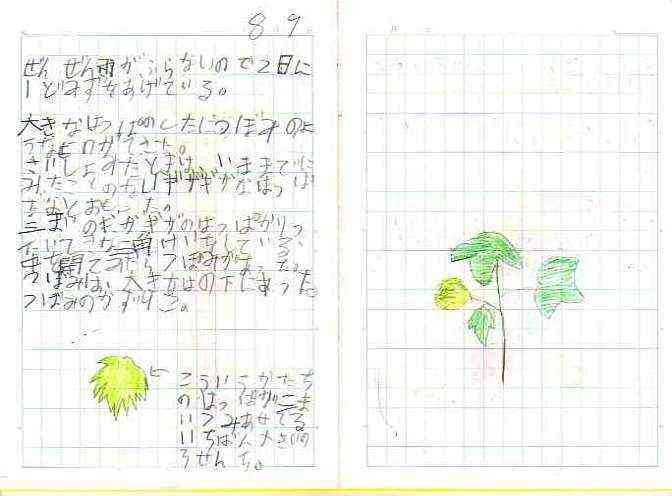 8 9
ぜんぜん雨がふらないので2日に
1どみずをあげている。
大きなはっぱのしたにつぼみのよ
うなものができた。
さいしょみたときは、いままでに
みたことのないギザギザなはっぱ
だなとおもった。
三まいのギザギザのはっぱがくっ
ついてさん角けいをしている、
中を開てみたらつぼみがあった。
つぼみは、大きなはの下にあった。
つぼみのかずは
こういうかたち
のはっぱが三ま
いくみあせてる
いちばん大きいの
3せんち。